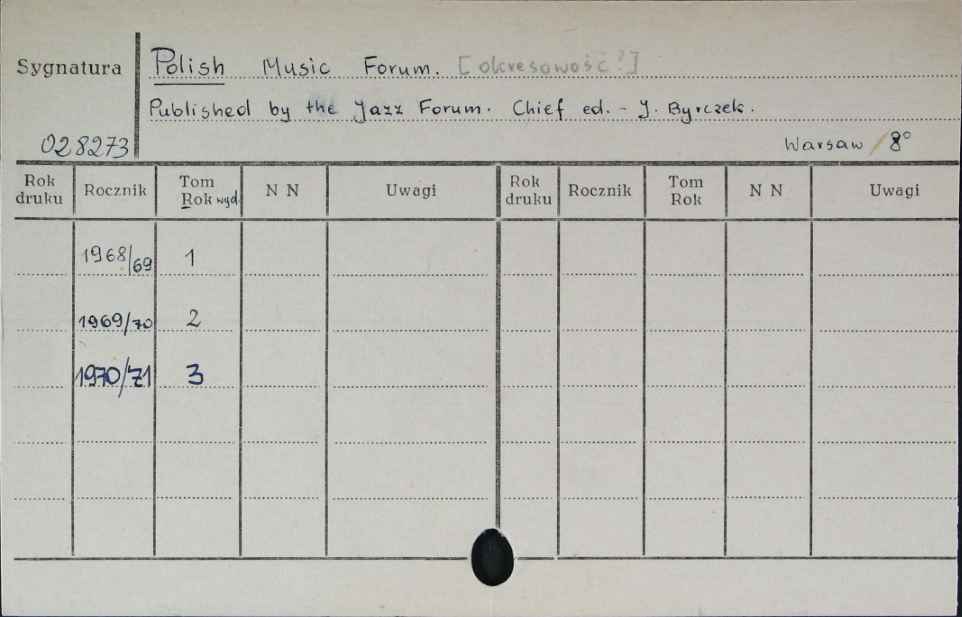 Sygnatura
Polish Music Forum. [okresowość?]
Published by the Jazz Forum. Chief ed. - J. Byrczek.
028273
Warsaw / 8°
Rok druku Rocznik Tom Rok wyd N N Uwagi Rok druku Rocznik Tom Rok N N Uwagi
1968/69 1
1969/70 2
1970/71 3